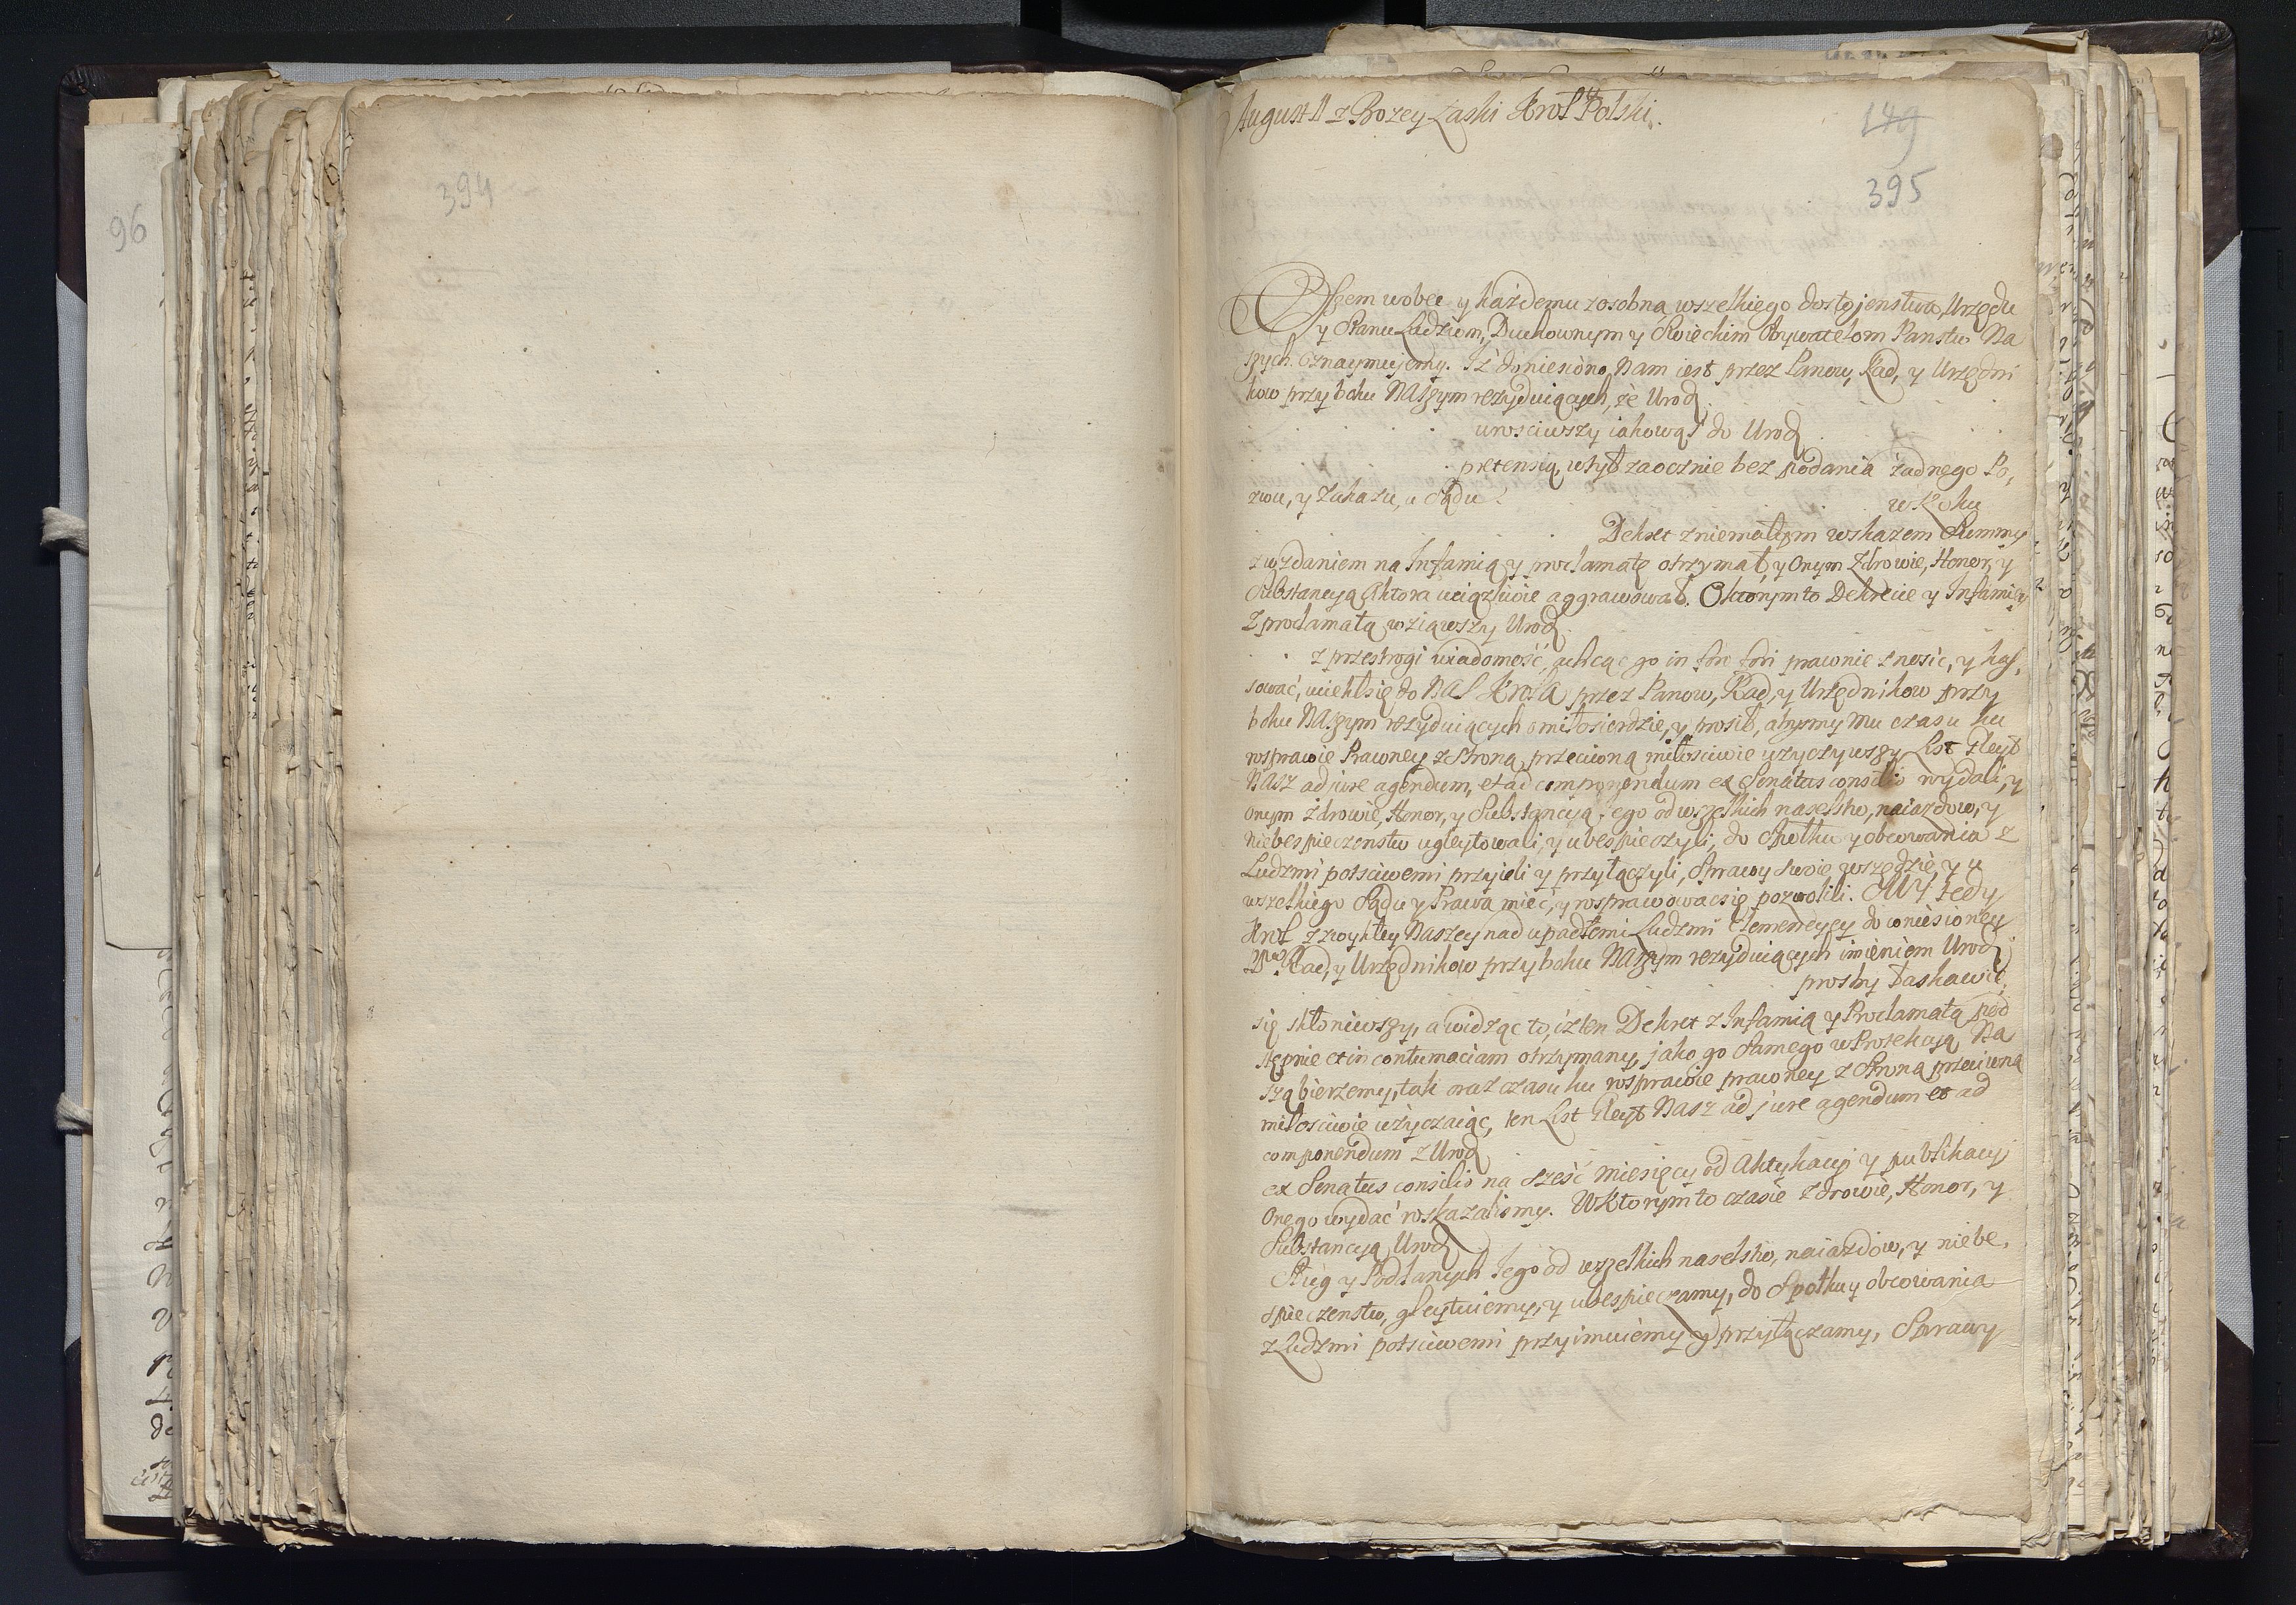 96
394
August II z Bozey Łaski Krol Polski.
149
395
Wszem wobec y każdemu zosobna, wszelkiego dostojenstwa, Urzędu
y Stanu Ludziom, Duchownym y Swieckim Obywatelom Panstw Na
szych Oznaymujemy. Iż doniesiono Nam iest przez Panow, Rad, y Urzędni
kow przy boku Naszym rezyduiących, że Urod
urosciwszy iakowąś do Urod
pretensią, wtył zaocznie bez podania żadnego Po,
zwu, y Zakazu, u Sądu
w Roku
Dekret z niemałym wskazem Summy
z wzdaniem na Infamią y proclamatę otrzymał, y Onym Zdrowie, Honor, y
Substancyą Aktora uciążliwie aggrawował. O ktorym to Dekrecie y Infamiey
Z proclamatą wziąwszy Urod
z przestrogi wiadomość, chcąc go in foro fori prawnie znosic, y kas,
sować, uciekł się do NAS Krola przez Panow, Rad, y Urzędnikow przy
boku Naszym rezyduiących o miłosierdzie, y prosił, abyśmy mu czasu ku
rosprawie Prawney z Stroną przeciwną miłosciwie użyczywszy List Gleyt
NASZ ad jure agendum, et ad componendum ex Senatus consilio wydali, y
onym Zdrowie, Honor, y Substancyą iego od wszelkich naselstw, naiazdow, y
niebespieczenstw ugleytowali, y ubespieczyli, do Społku y obcowania z
Ludzmi potsciwemi przyieli y przyłączyli, Sprawy swoie wszędzie, y u
wszelkiego Sądu y Prawa miec, y rosprawowac się pozwolili. MY tedy
Krol z zwykłey Naszey nad upadłemi Ludzmi Clemencyey do wniesioney
Rad, y Urzędnikow przy boku Naszym rezyduiących imieniem Urod
prosby łaskawie
się skłoniwszy, a widząc to, iż ten Dekret z Infamią y Proclamatą pod
stępnie et in contumaciam otrzymany, jako go samego w Protekcyą Na
szą bierzemy, tak oraz czasu ku rosprawie prawney z Stroną przeciwną
miłosciwie użyczaiąc, ten List Gleyt Nasz ad jure agendum et ad
componendum z Urod
ex Senatus consilio na sześć miesięcy od Aktykacyi y publikacyi
Onego wydać roskazalismy. W Ktorym to czasie zdrowie, Honor, y
Substancyą Urod
Sług y Poddanych Iego od wszelkich naselstw, naiazdow, y niebe,
spieczenstw, gleytuiemy, y ubespieczamy, do Społku y obcowania
z Ludzmi potsciwemi przyimuiemy y przyłączamy, Sprawy